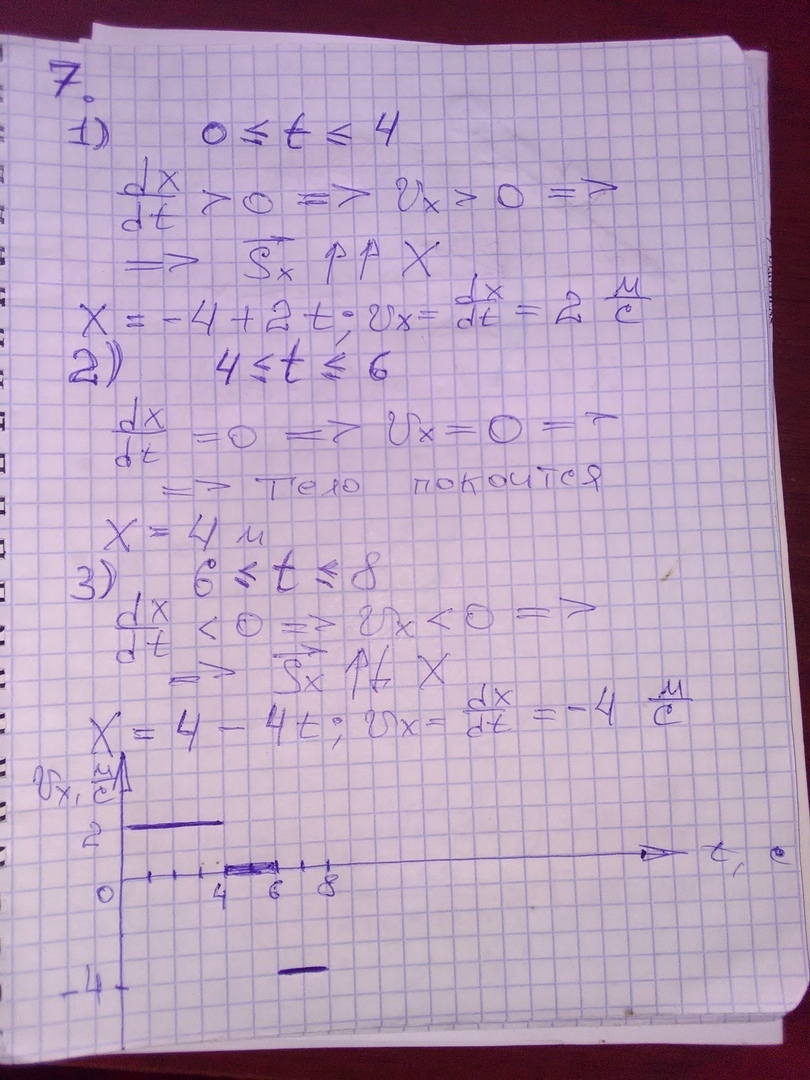 7.
1) 0 ≤ t ≤ 4
dx/dt > 0 => υx > 0 =>
=> Sx ↑↑ X
X = -4 + 2t; υx = dx/dt = 2 м/с
2) 4 ≤ t ≤ 6
dx/dt = 0 => υx = 0 =>
=> Тело покоится
X = 4 м
3) 6 ≤ t ≤ 8
dx/dt < 0 => υx < 0 =>
=> Sx ↑↓ X
X = 4 - 4t; υx = dx/dt = -4 м/с
υx, м/с
2
t, с
0 4 6 8
-4